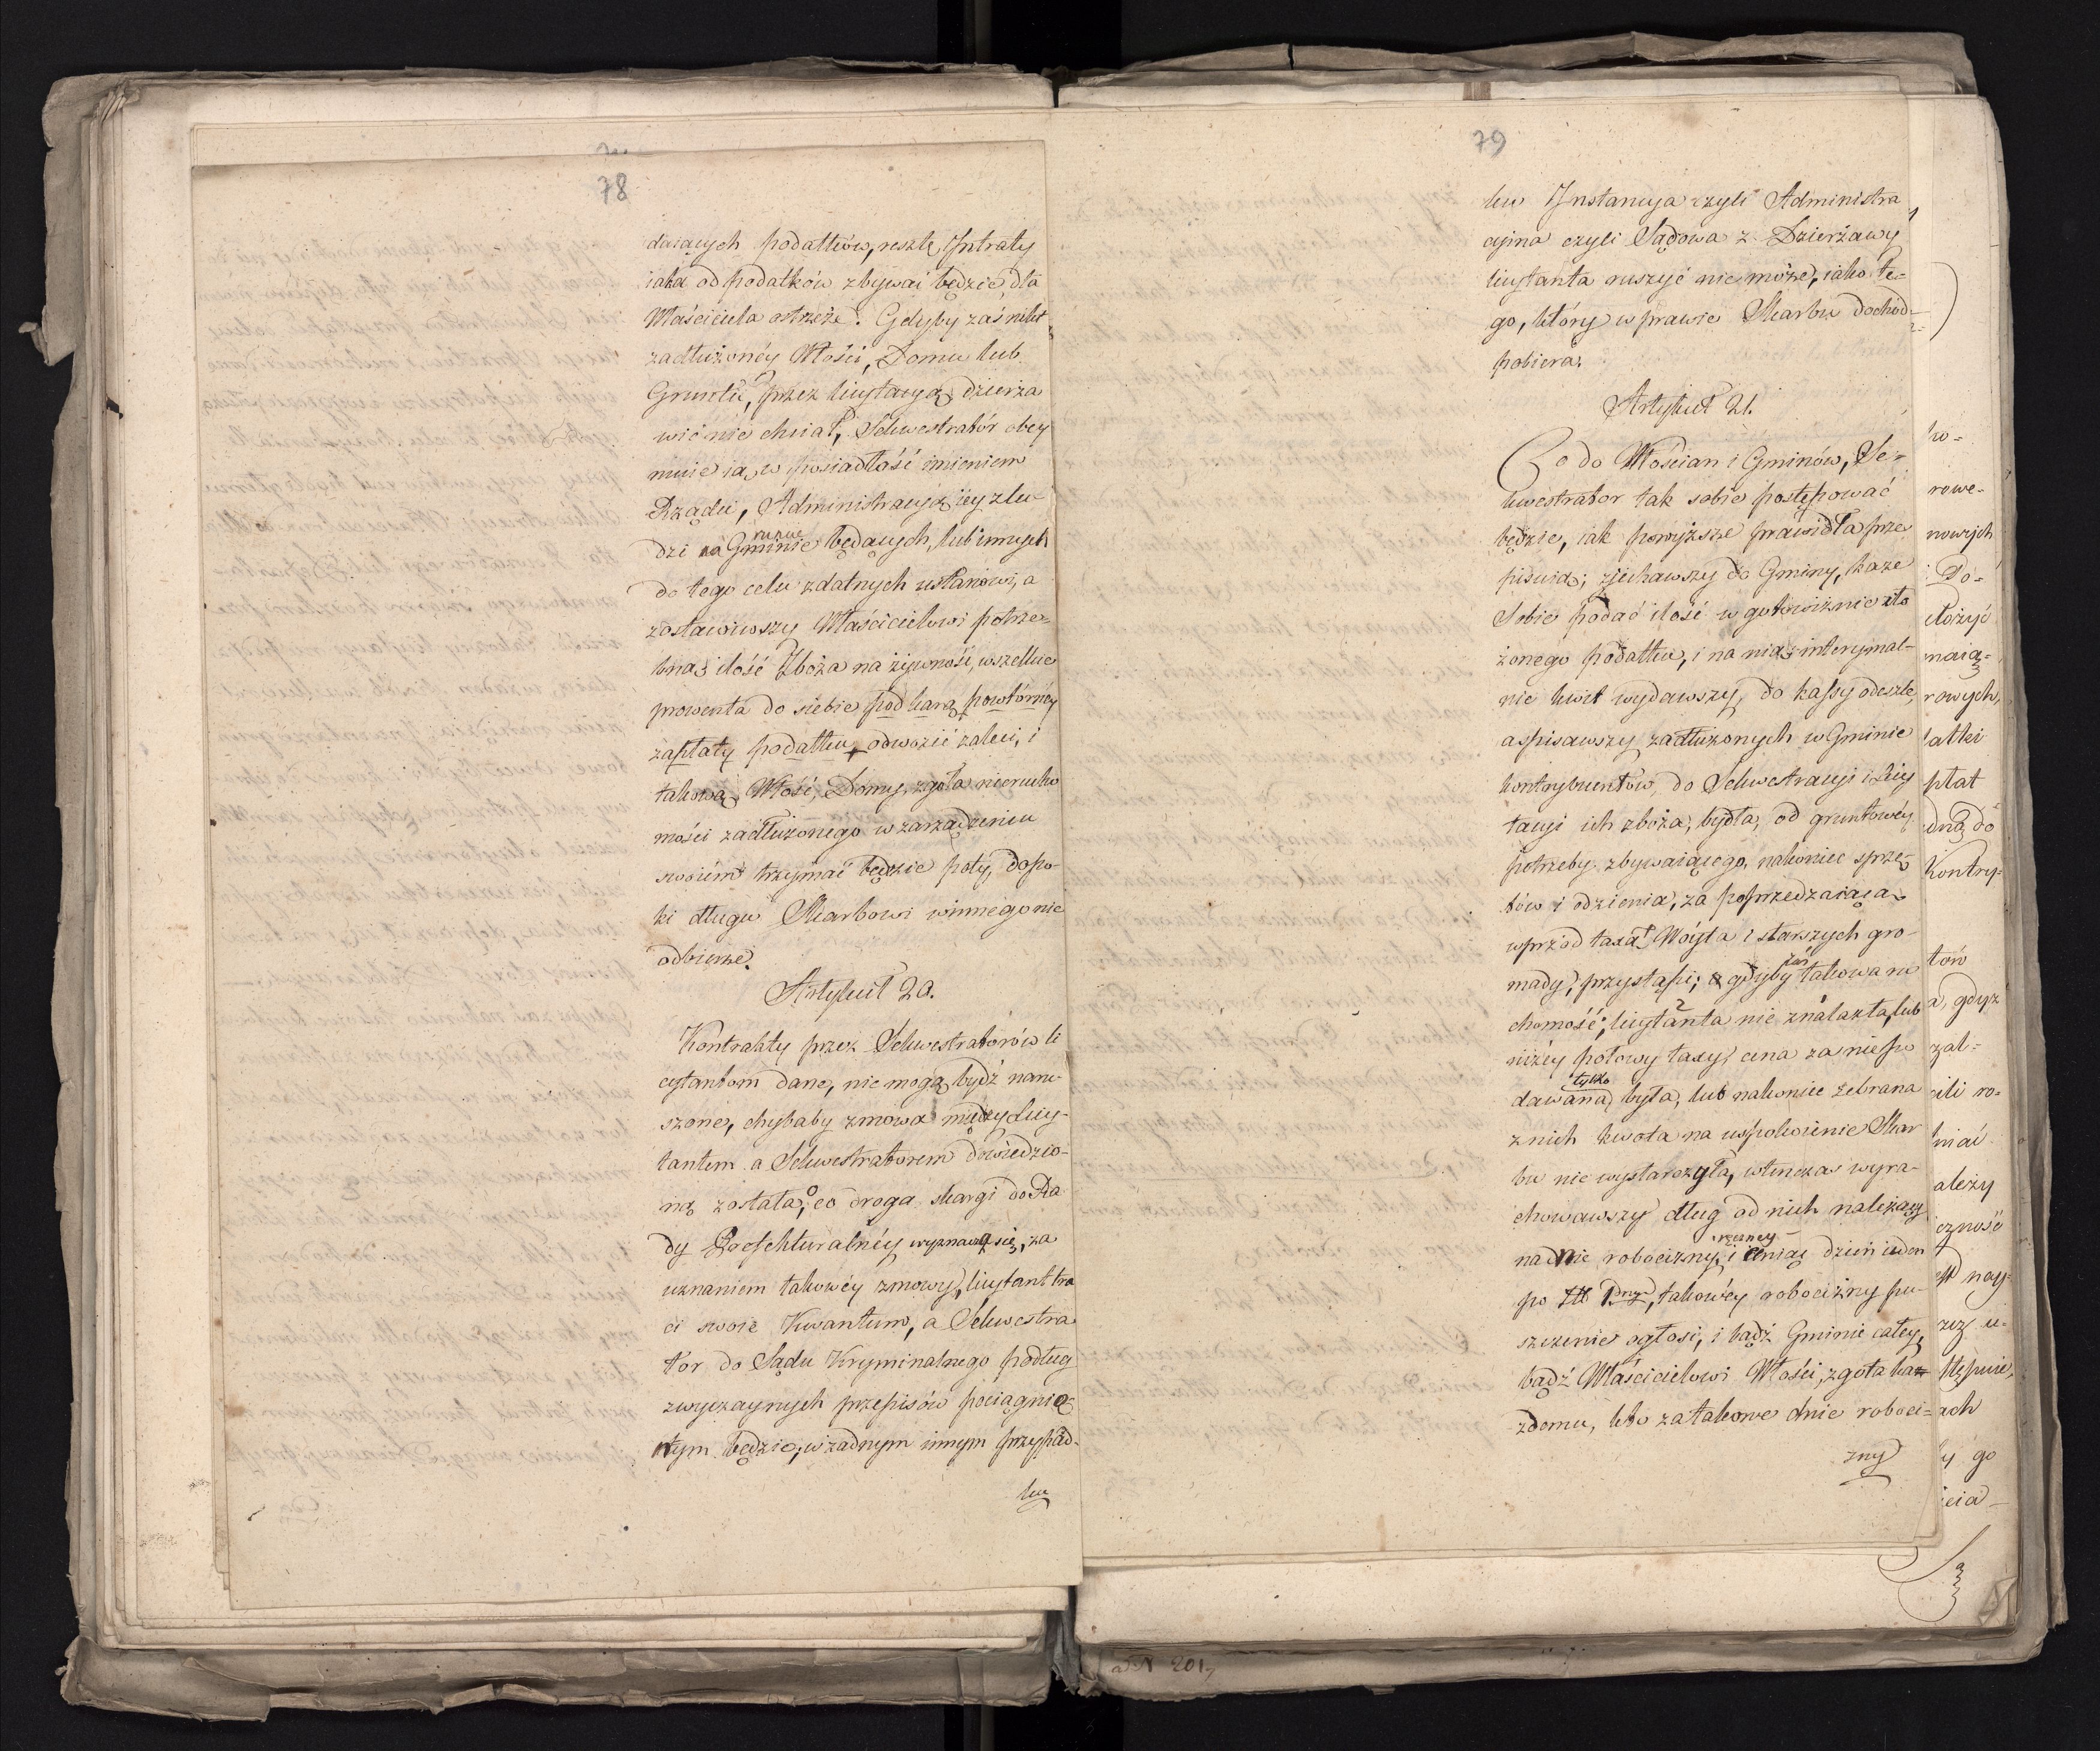 78
daiących podatków, resztę Intraty
iaka od podatków zbywać będzie, dla
Właściciela ostrzeże. Gdyby zaś nikt
zadłużonéy Włości, Domu lub
Gruntu, przez licytacyą dzierża
wić nie chciał, Sekwestratór obey
muie ią w posiadłość imieniem
Rządu, Administracyą iey z lu-
dzi w Gminie będących, lub innych
do tego celu zdatnych ustanowi, a
zostawiwszy Właścicielowi potrze-
bną ilość Zboża na żywność, wszelkie
prowenta do siebie pod karą powtórnéy
zapłaty podatku, odwozić zaleci, i
takową Włość, Domy, zgoła nierucho
mości zadłużonego w zarządzeniu
swoiém trzymać będzie poty, dopo-
ki długu Skarbowi winnego nie
odbierze.
Artykuł 20.
Kontrakty przez Sekwestratorów li
cytantom dane, nie mogą bydź naru-
szone, chybaby zmowa między Licy-
tantem a Sekwestratorem dowiedzio-
ną została, co drogą skargi do Ra
dy Prefekturalnéy wyznawa się, za
uznaniem takowéy zmowy, licytant tra
ci swoie Kwantum, a Sekwestra
tor do Sądu Kryminalnego podług
zwyczaynych przepisów pociągnię
tym będzie, w żadnym innym przypad-
ku
79
ku Instancyia czyli Administra
cyina czyli Sądowa z Dzierżawy
licytanta ruszyć nie może, iako te-
go, który w prawie Skarbu dochód
pobiera.
Artykuł 21.
Co do Włościan i Gminów, Se-
kwestrator tak sobie postępować
będzie, iak powyższe prawidła prze
pisuią; zjechawszy do Gminy, każe
Sobie podać ilość w gotowiznie zło
żonego podatku, i na nią interymal-
nie kwit wydawszy, do kassy odeszle,
a spisawszy zadłużonych w Gminie
kontrybuentów, do Sekwestracyi i Licy
tacyi ich zboża, bydła, od gruntowéy
potrzeby zbywaiącego, nakoniec sprzę
tów i odzienia, za poprzedzaiącą
wprzód taxą Wóyta i starszych gro-
mady, przystąpi; gdyby zaś takowa ru
chomość, licytanta nie znalazła, lub
niżéy połowy taxy, cena za nie po
dawana tylko była, lub nakoniec zebrana
z nich kwota na uspokoienie Skar
bu nie wystarczyła, wtenczas wyra-
chowawszy dług od nich należący
na dnie robocizny ręczney i dzień ieden
po takowéy robocizny pu-
szczenie ogłosi, i bądź Gminie całey,
bądź Właścicielowi Włości, zgoła
zdomu, kto za takowe dnie roboci-
zny
ko-
rowe-
nowych
Do-
złożyć
maią-
rowych,
atki
płat
dną do
Kontry-
tów
a, gdyż
zal-
ili ro-
należy
czność
nay-
rzez u-
stępnie,
ach
y go
ieia-
201